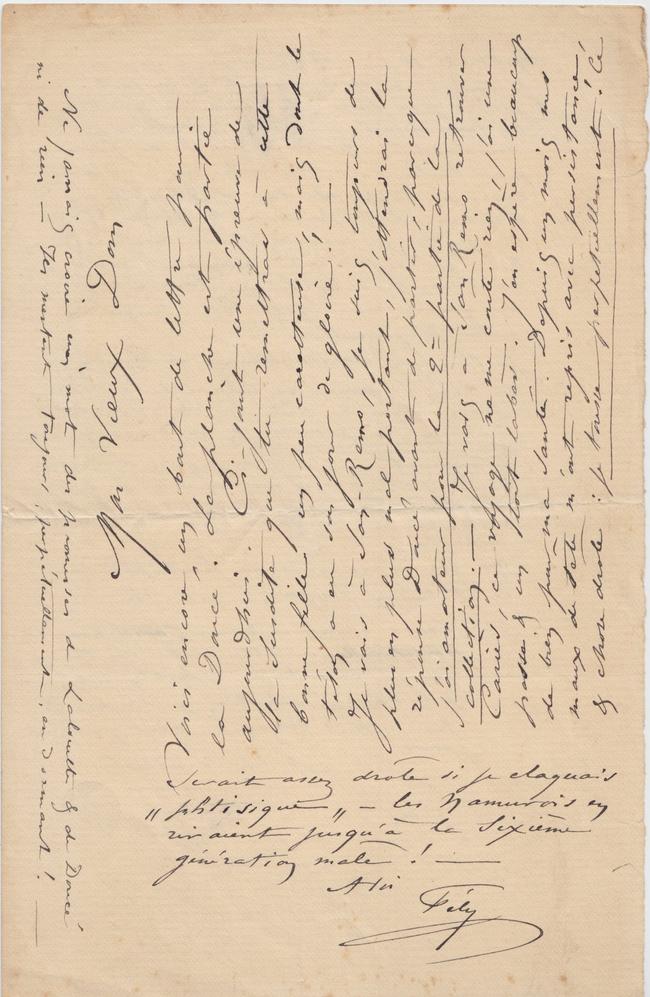 Mon Vieux Dom
Voici encore un bout de lettre pour
la Doucé. La planche est partie
aujourdhui. Ci-joint une épreuve de
la susdite que tu remettras à cette
bonne fille, un peu caratteuse, mais dont le
a eu son jour de gloire! —
Je vais à San-Remo, je suis toujours de
plus en plus mal portant, j'attendrai la
réponse Doucé avant de partir, parceque
j'ai amateur pour la 2e partie de la
collection: — Je vais à San Remo retrouver
Cariès, ce voyage ne me coûte rien, j'ai une
passe, & un J'en espère beaucoup
de bien pour ma santé. Depuis un mois mes
maux de tête m'ont repris avec persistance!
& chose drôle: je tousse perpétuellement! Ce
Serait assez drôle si je claquais
„phtisique„ — les Namurois en
riraient jusqu'à la sixième
génération mâle! —
A toi
Fély
Ne jamais croire un mot des promesses de & de Doucé
ni de rien — Ils mentent toujours, perpétuellement, en dormant! —